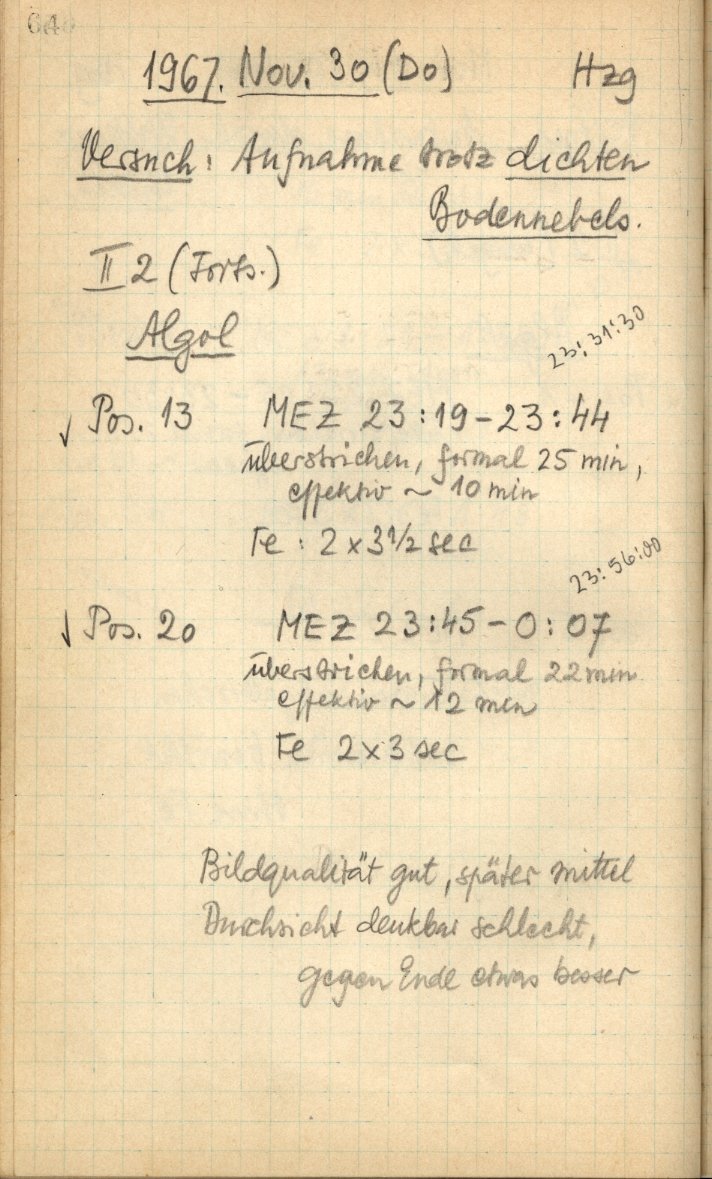 64
1967. Nov. 30 (Do) Hzg
Versuch: Aufnahme trotz dichten
Bodennebels.
II 2 (Forts.)
Algol
23:31:30
√ Pos. 13 MEZ 23:19-23:44
überstrichen, formal 25 min,
effektiv ~ 10 min
Fe: 2 x 3 1/2 sec
23:56:00
√ Pos. 20 MEZ 23:45-0:07
überstrichen, formal 22 min
effektiv ~ 12 min
Fe 2x3 sec
Bildqualität gut, später mittel
Durchsicht denkbar schlecht,
gegen Ende etwas besser